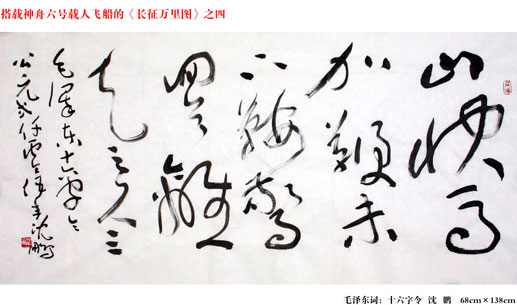 搭载神舟六号载人飞船的《长征万里图》之四
山快马
加鞭未
下鞍驚
回首離
天三尺三
毛澤东十六字令
公元贰仟零伍年沈鹏
毛泽东词：十六字令 沈 鹏 68cm×138cm